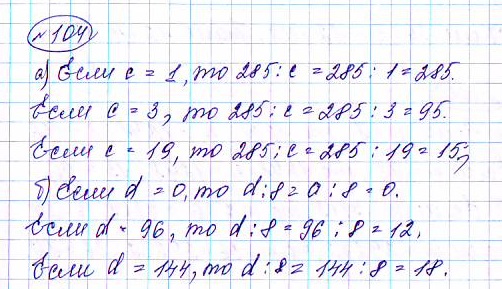 №104
а) Если c = 1, то 285 : c = 285 : 1 = 285.
Если c = 3, то 285 : c = 285 : 3 = 95.
Если c = 19, то 285 : c = 285 : 19 = 15;
б) Если d = 0, то d : 8 = 0 : 8 = 0.
Если d = 96, то d : 8 = 96 : 8 = 12.
Если d = 144, то d : 8 = 144 : 8 = 18.